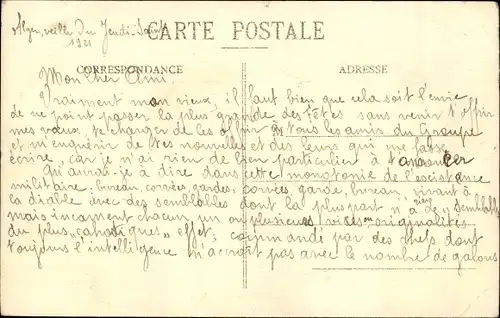 Alger, veille du Jeudi-Saint
1921
CARTE POSTALE
CORRESPONDANCE
ADRESSE
Mon cher Ami
Vraiment mon vieux, il faut bien que cela soit l'envie
de ne point passer la plus grande des fêtes sans venir t'offrir
mes vœux, te charger de les offrir à tous les amis du Groupe
et m'enquérir de tes nouvelles et des leurs qui me fasse
écrire, car je n'ai rien de bien particulier à t'annoncer
Qu'aurai-je à dire dans cette monotonie de l'existence
militaire: bureau, corvées, gardes, corvées garde, bureau, vivant à
la diable avec des semblables dont la plus part n'a rien de semblable
mais incarnent chacun un ou plusieurs vices ou originalités
du plus effet, commandé par des chefs dont
toujours l'intelligence n'accroît pas avec le nombre de galons